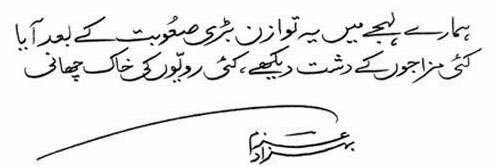 ہمارے لہجے میں یہ توازن بڑی صعُوبت کے بعد آیا
کئی مزاجوں کے دشت دیکھے، کئی رویّوں کی خاک چھانی
بہزاد عزم